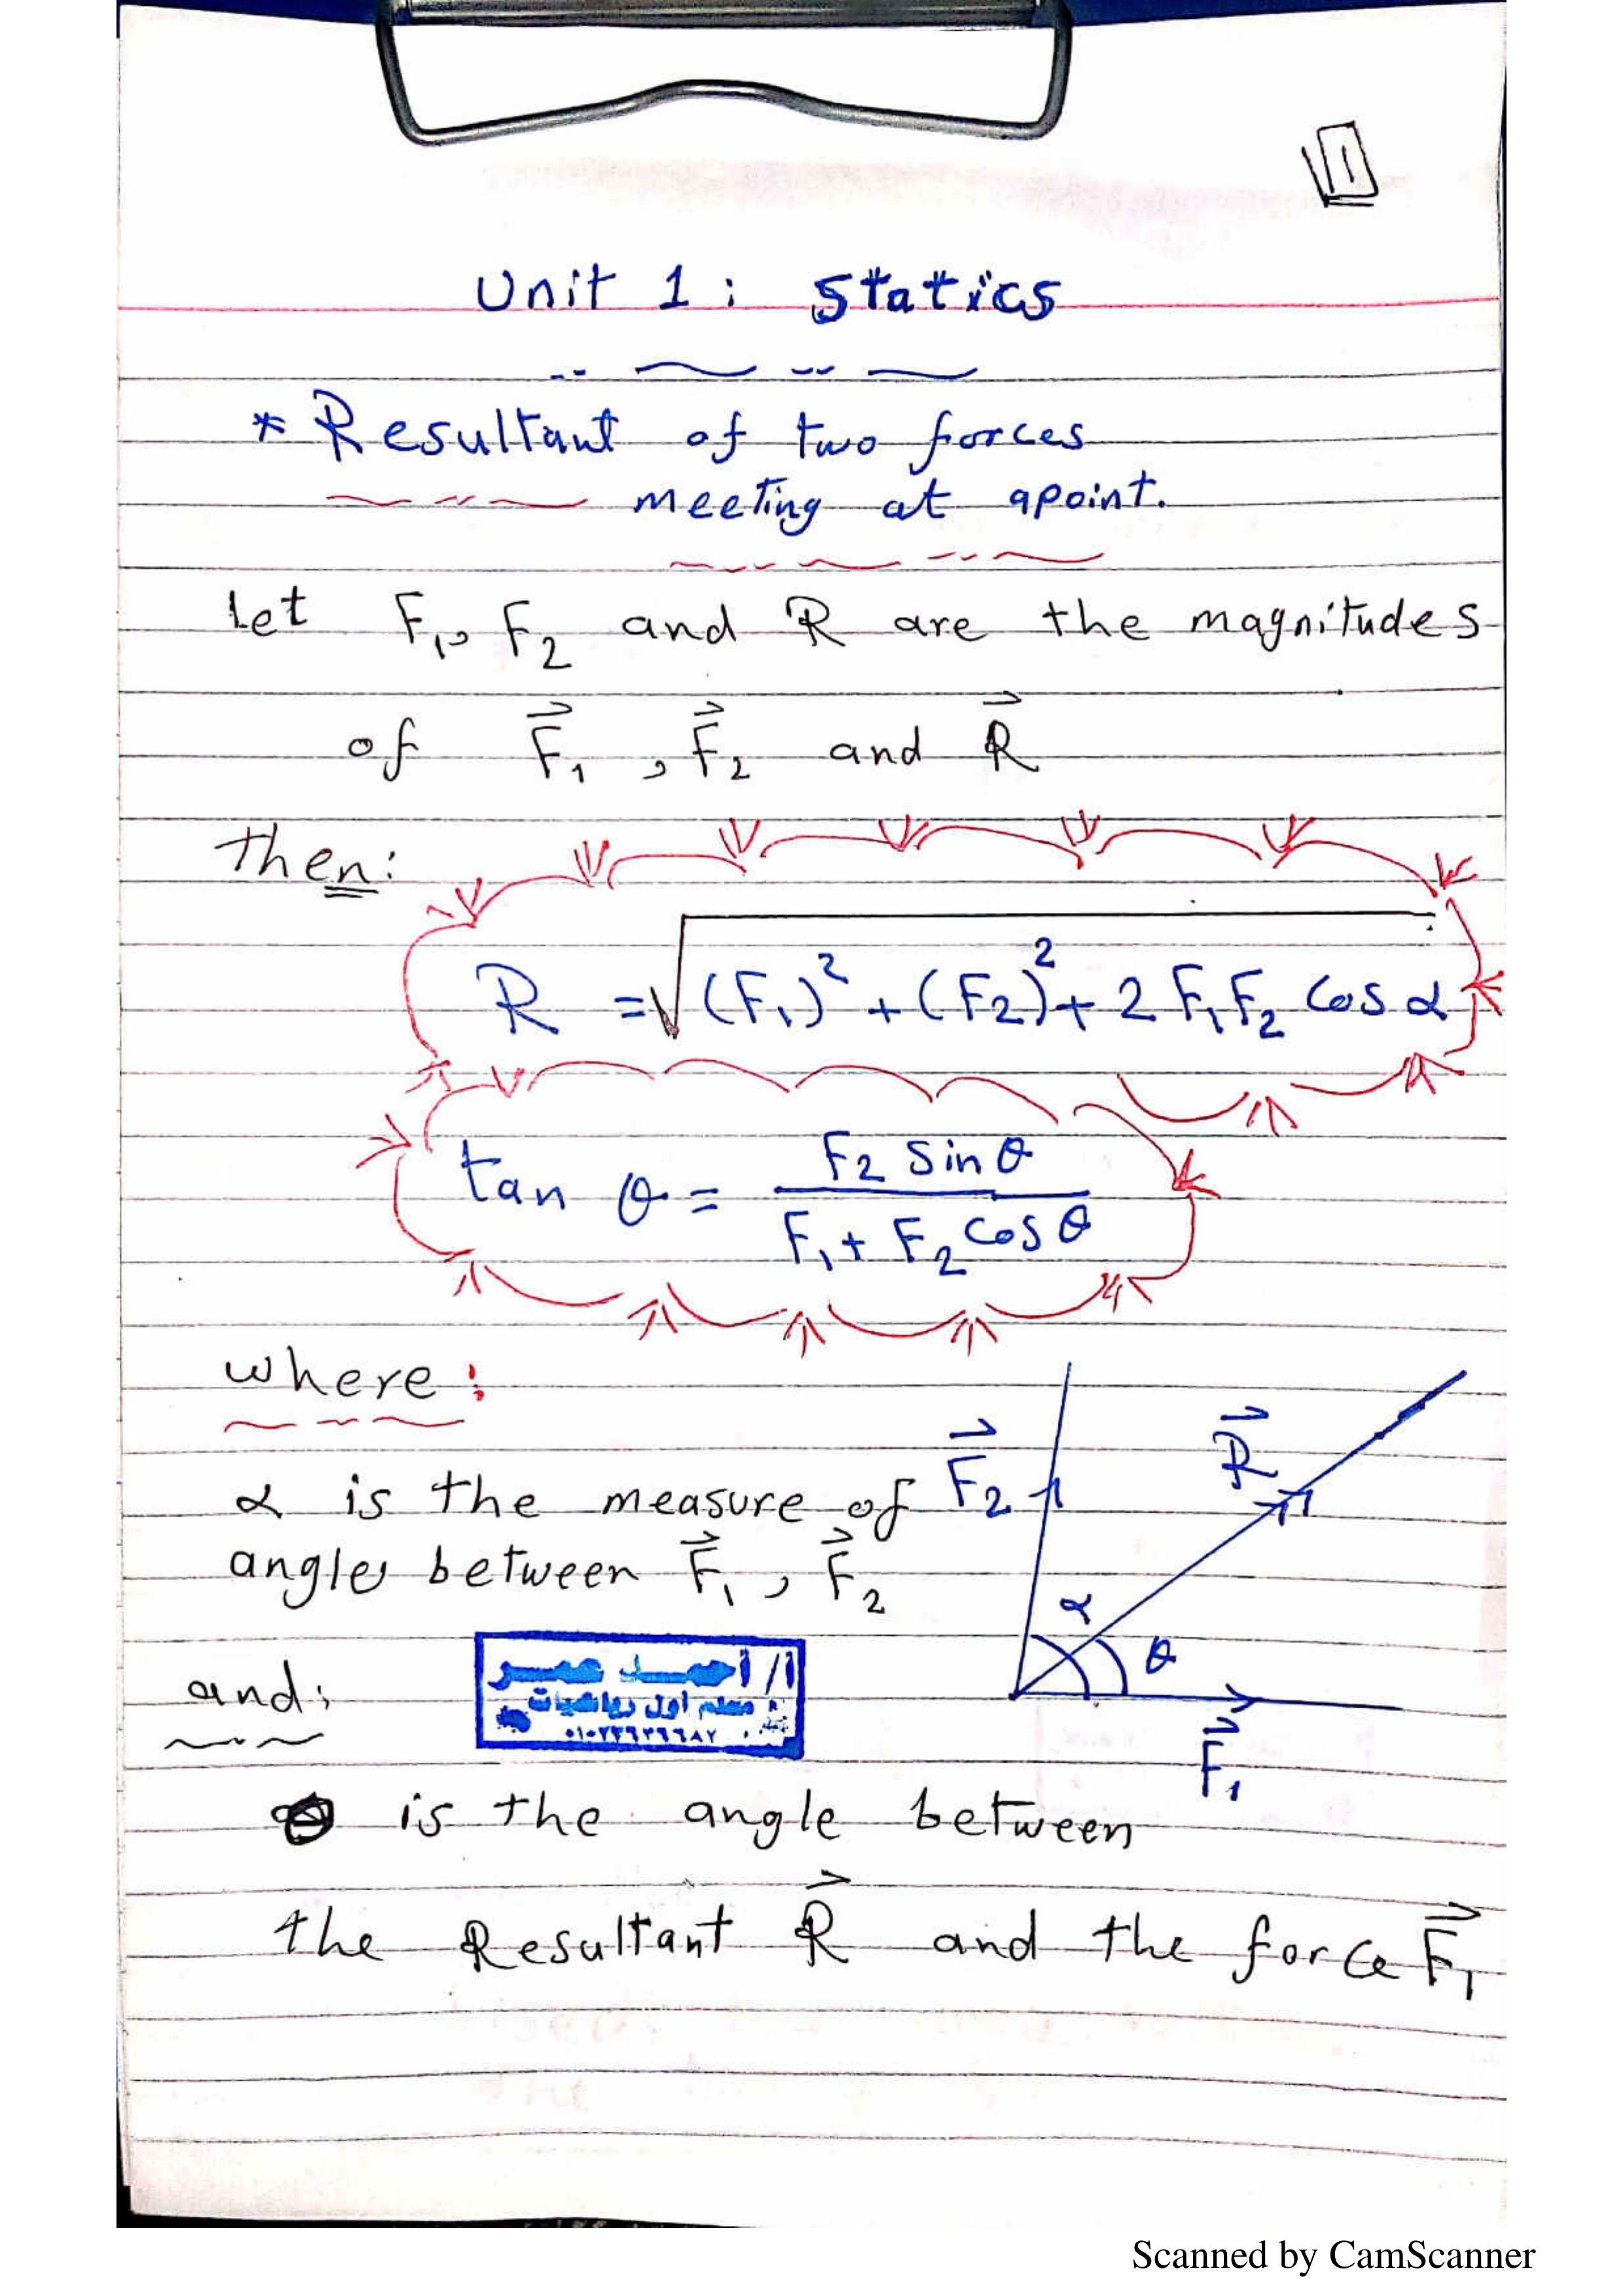 1
Unit 1 : Statics
* Resultant of two forces
meeting at apoint.
Let F₁, F₂ and R are the magnitudes
of F⃗₁ , F⃗₂ and R⃗
then:
R = √((F₁)² + (F₂)² + 2 F₁ F₂ cos α)
tan θ = (F₂ sin θ) / (F₁ + F₂ cos θ)
where :
α is the measure of
angles between F⃗₁ , F⃗₂
F⃗₂
R⃗
α
θ
F⃗₁
and:
أ/ أحمد عمر
معلم أول رياضيات
θ is the angle between
the Resultant R⃗ and the force F⃗₁
Scanned by CamScanner